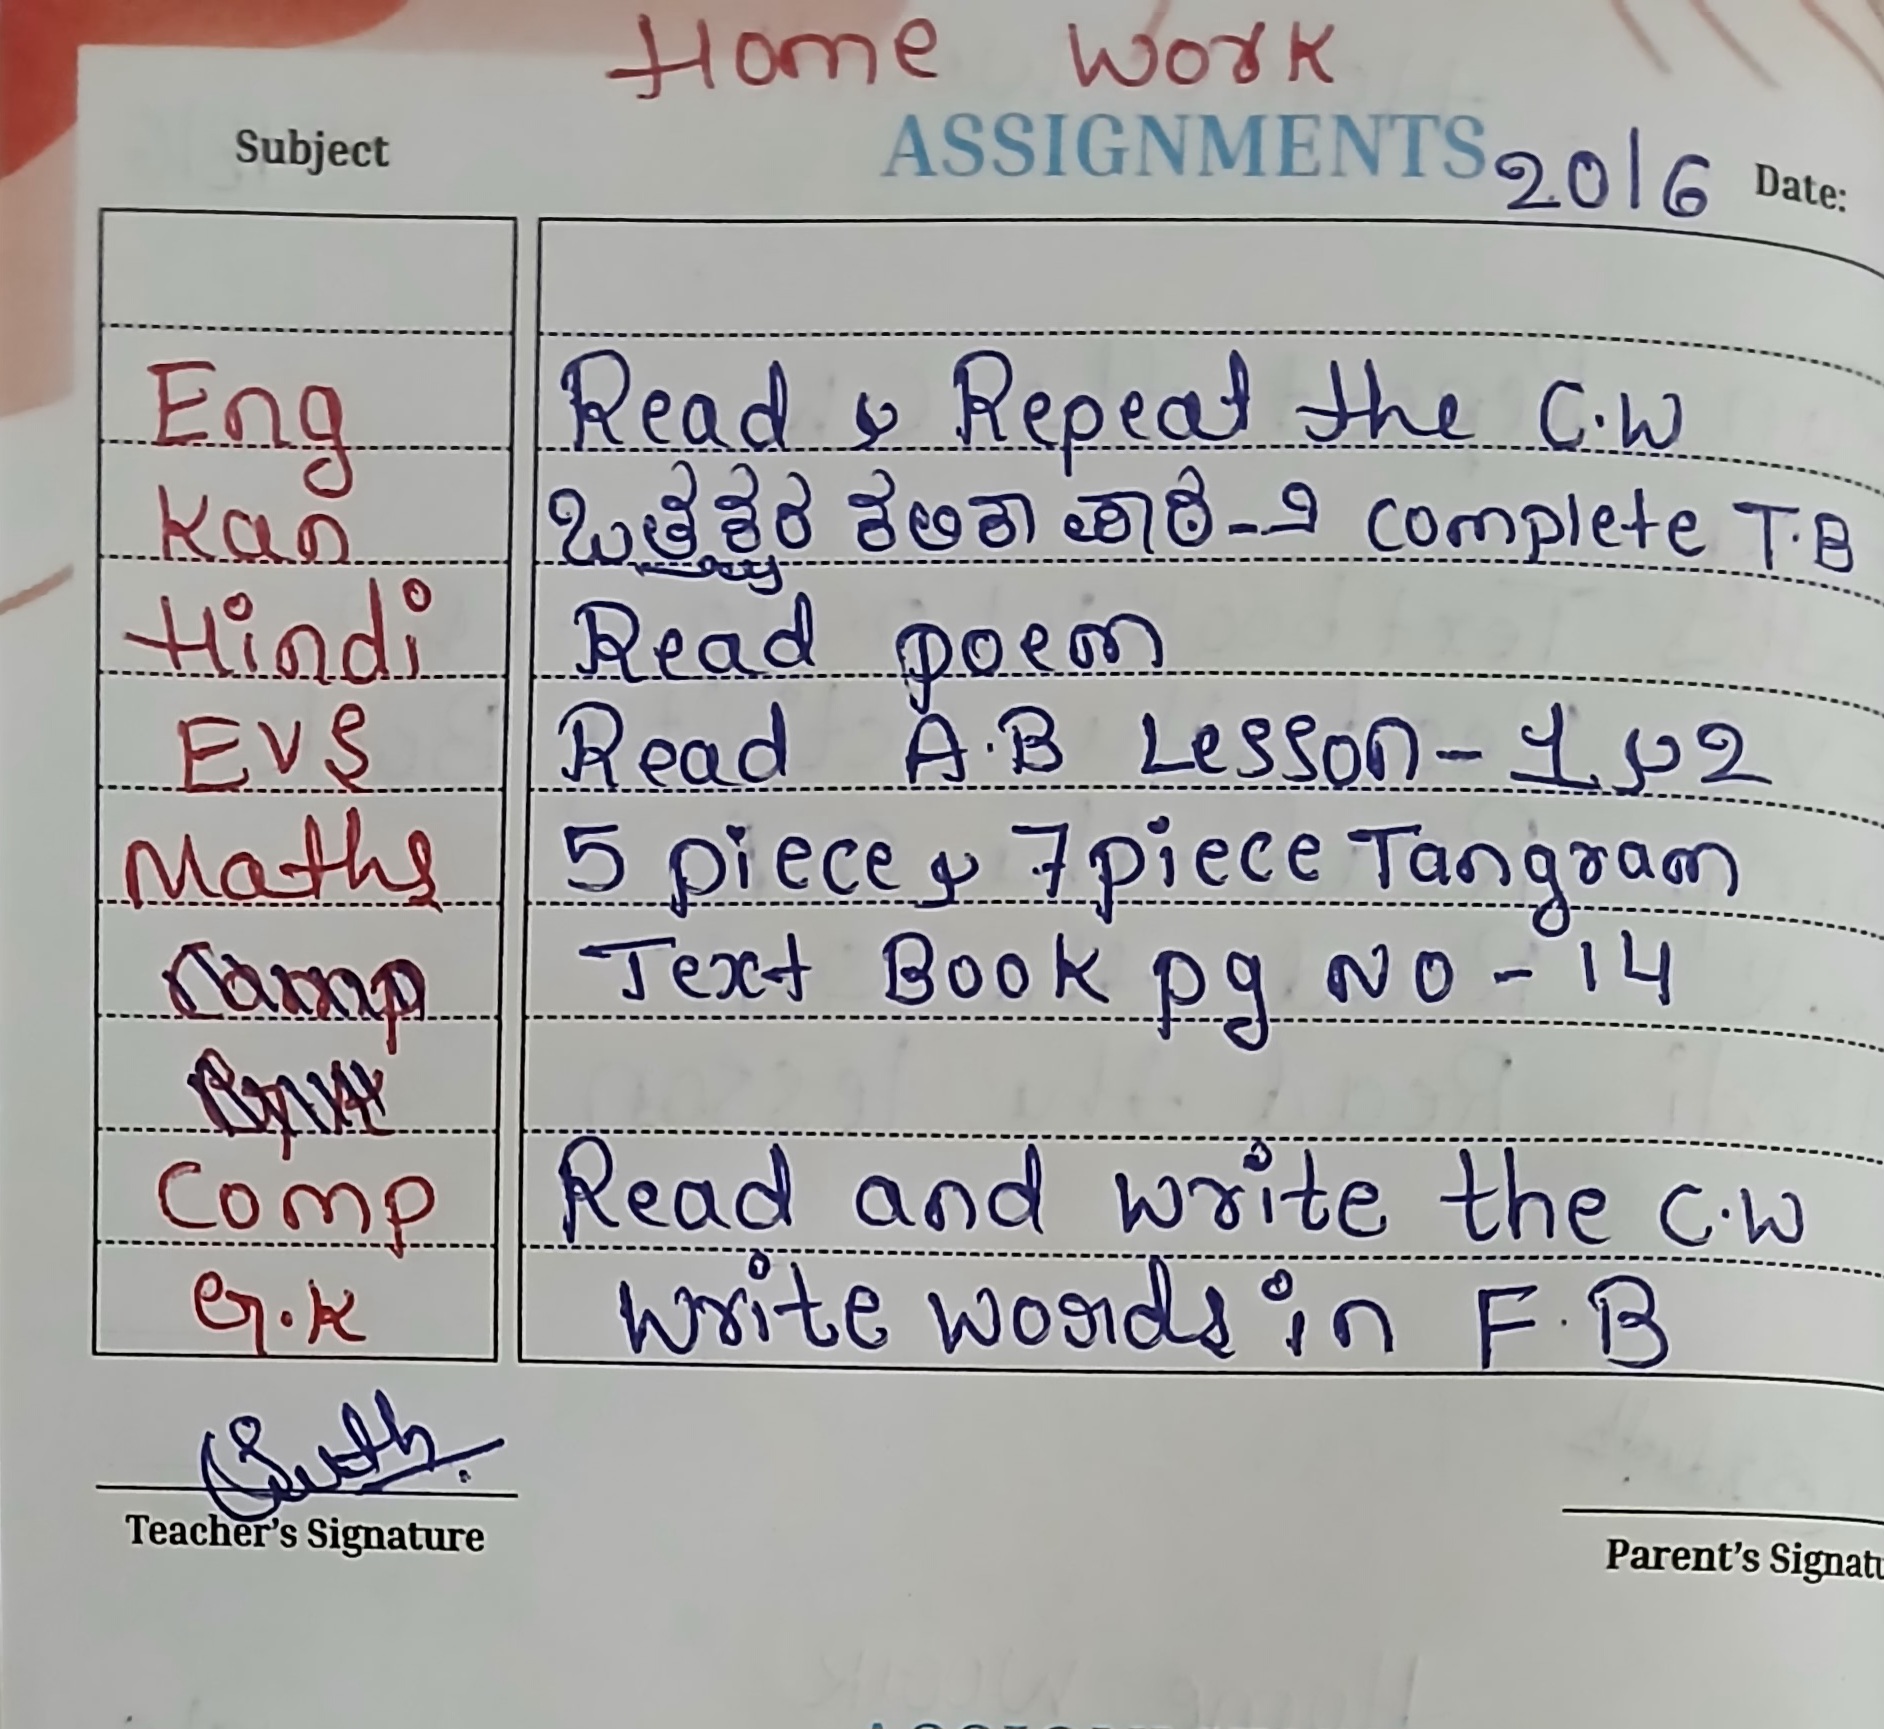 Home Work
Subject ASSIGNMENTS 20/6 Date:
Eng Read & Repeat the C.W
Kan complete T.B
Hindi Read poem
EVS Read A.B Lesson - 1 & 2
Maths 5 piece & 7 piece Tangram
Text Book pg NO - 14
Comp Read and write the C.W
G.K Write words in F.B
Teacher's Signature
Parent's